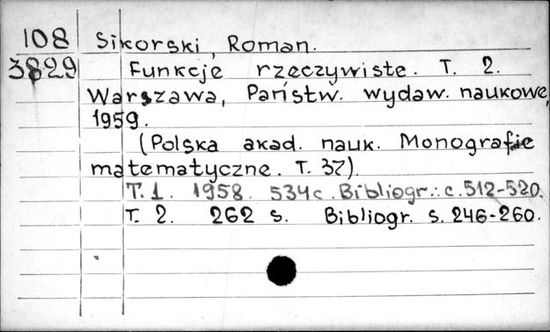 108 Sikorski, Roman.
3829 Funkcje rzeczywiste. T. 2.
Warszawa, Państw. wydaw. naukowe,
1959.
(Polska akad. nauk. Monografie
matematyczne. T. 37).
T. 1. 1958. 534 c. Bibliogr.: c. 512-520.
T. 2. 262 s. Bibliogr. s. 246-260.